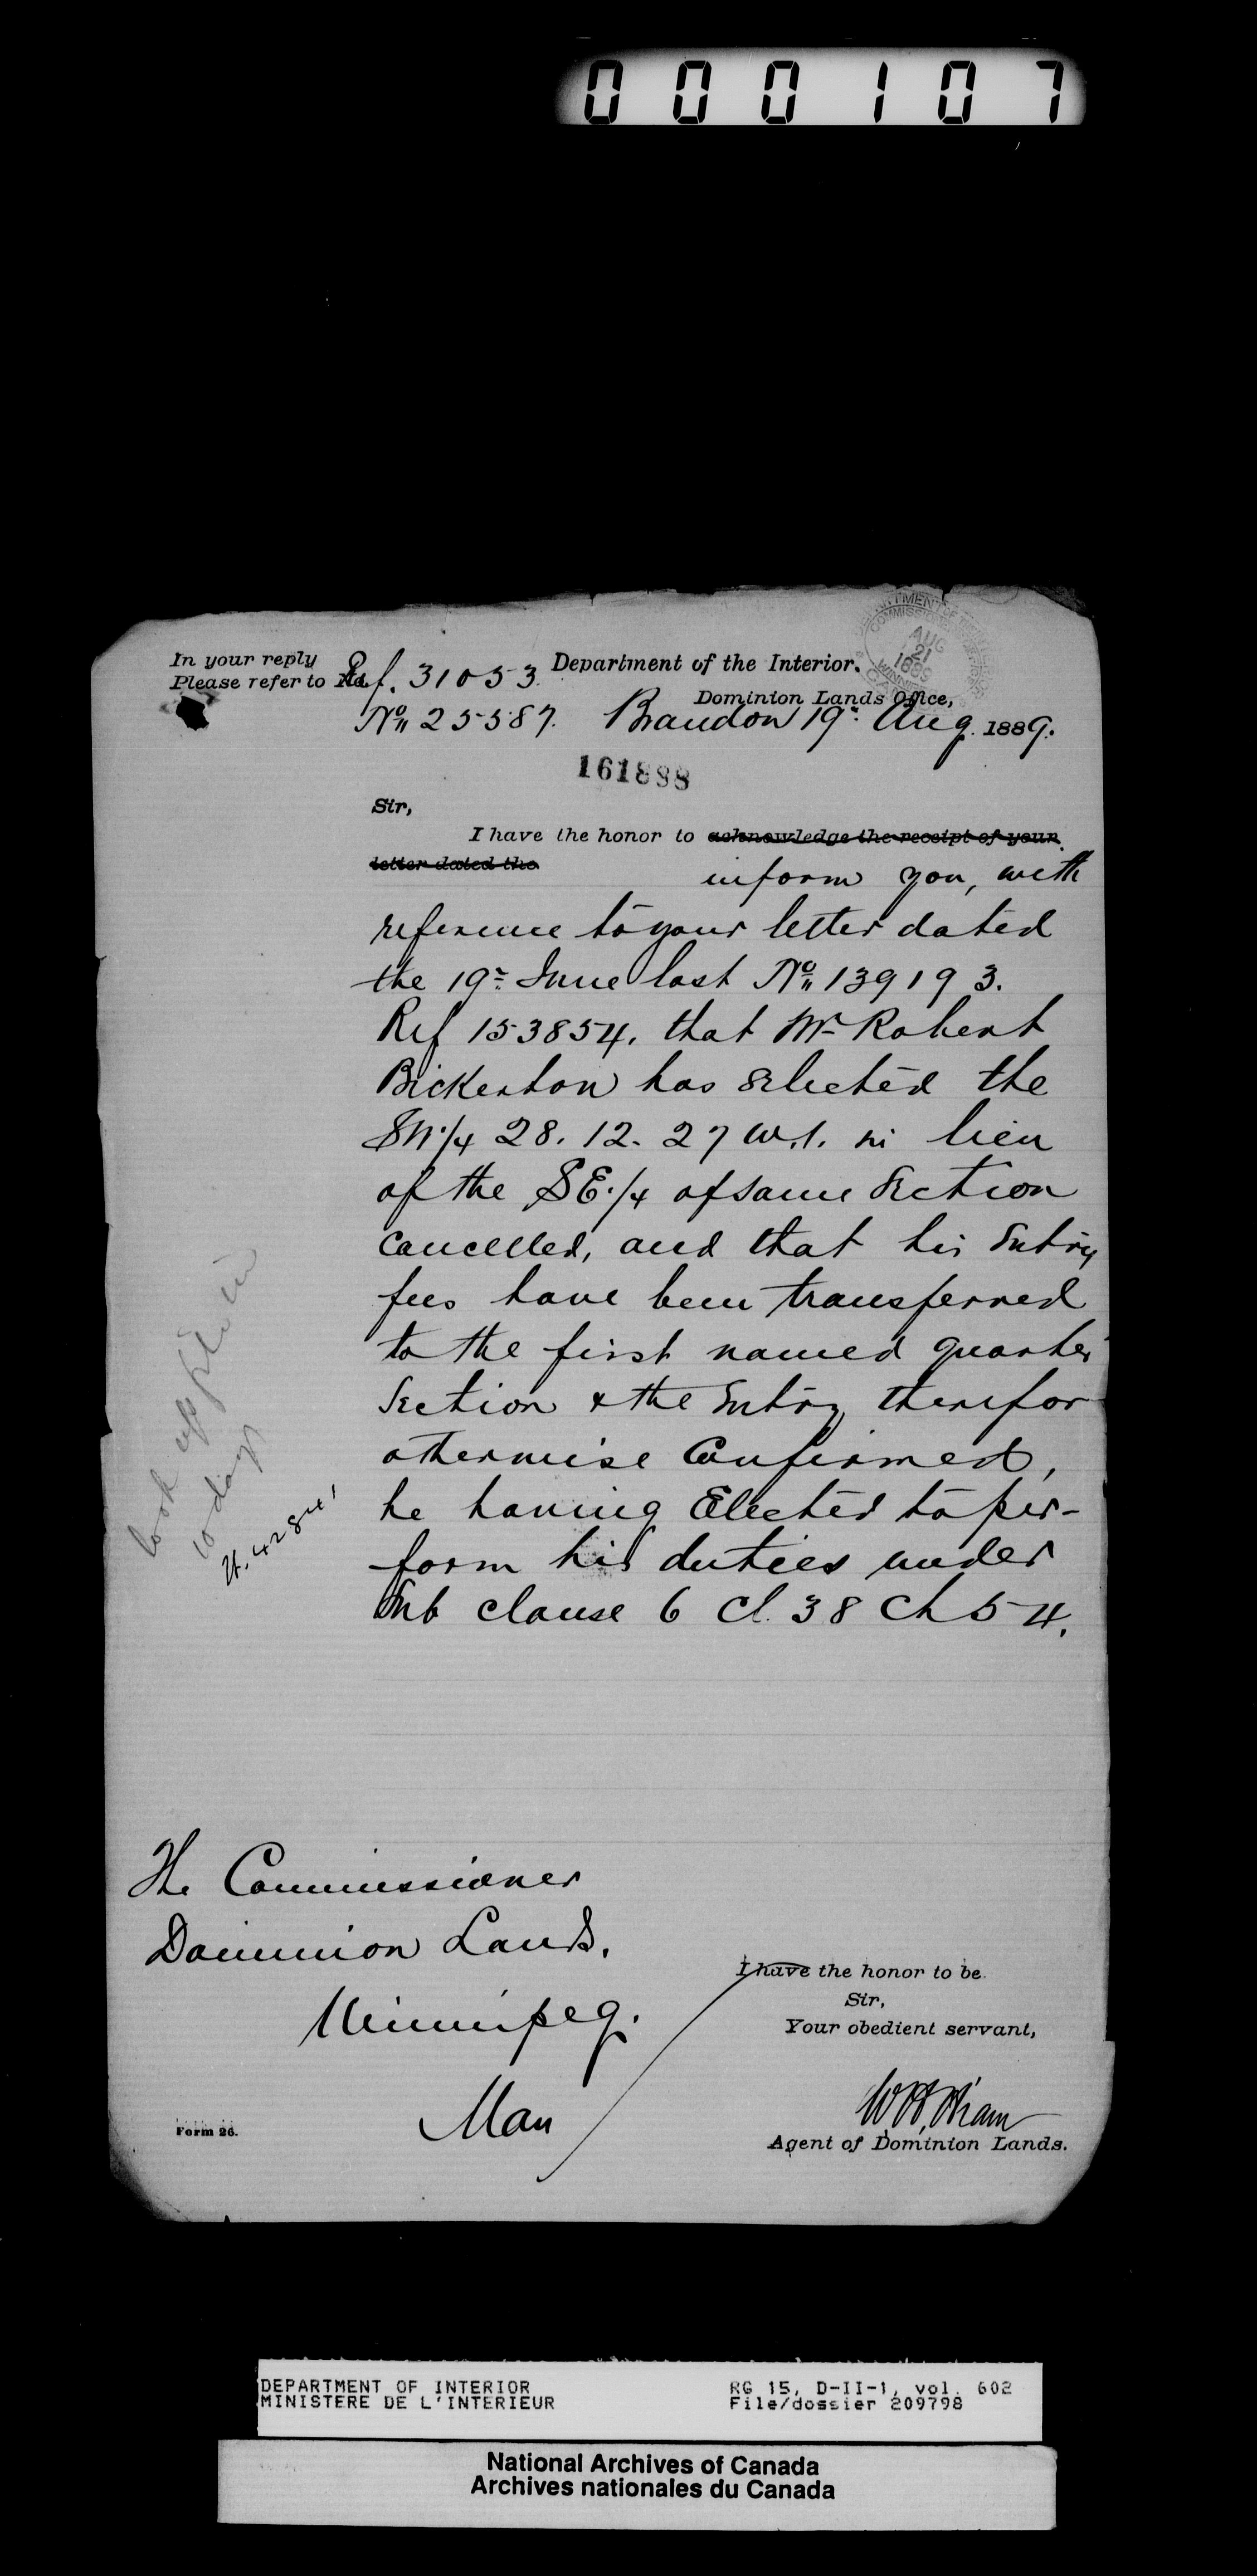 000107
DEPARTMENT OF THE INTERIOR
COMMISSIONER
AUG
21
1889
WINNIPEG
In your reply
Please refer to No.
Ref. 31053.
Department of the Interior.
Dominion Lands Office,
No 25587. Brandon 19th Aug. 1889.
161888
Sir,
I have the honor to acknowledge the receipt of your
letter dated the
inform you, with
reference to your letter dated
the 19th June last No 139193.
Ref 153854. that Mr Robert
Bickerton has selected the
SW 1/4 28. 12. 27 W.1. in lieu
of the SE. 1/4 of same Section
cancelled, and that his Entry
fees have been transferred
to the first named quarter
Section & the Entry therefor
otherwise Confirmed,
he having Elected to per-
form his duties under
Sub clause 6 Cl. 38 Ch 54.
10 days
H. 4284,
The Commissioner
Dominion Lands.
Winnipeg.
Man
I have the honor to be
Sir,
Your obedient servant,
Agent of Dominion Lands.
Form 26.
DEPARTMENT OF INTERIOR
MINISTERE DE L'INTERIEUR
RG 15, D-II-1, vol. 602
File/dossier 209798
National Archives of Canada
Archives nationales du Canada